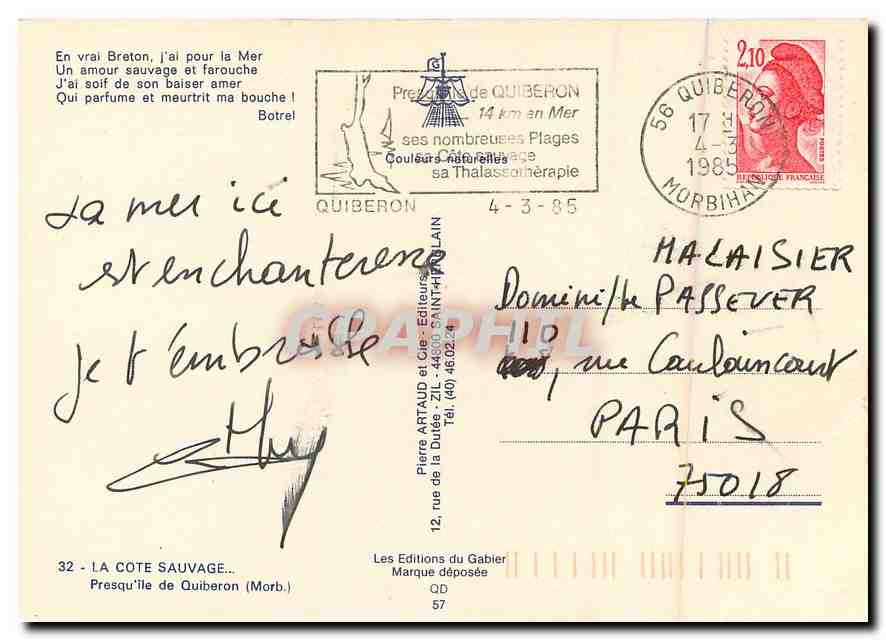 En vrai Breton, j'ai pour la Mer
Un amour sauvage et farouche
J'ai soif de son baiser amer
Qui parfume et meurtrit ma bouche !
Botrel
Presqu'île de QUIBERON
14 km en Mer
ses nombreuses Plages
sa Côte sauvage
sa Thalassothérapie
QUIBERON 4-3-85
Couleurs naturelles
56 QUIBERON
17 H
4-3
1985
MORBIHAN
2,10
POSTES
REPUBLIQUE FRANÇAISE
La mer ici
est enchanteresse
je t'embrasse
MALAISIER
PASSEVER
110
, rue Caulaincourt
PARIS
75018
Pierre ARTAUD et Cie - Editeurs
12, rue de la Dutée - ZIL - 44800 SAINT-HERBLAIN
Tél. (40) 46.02.24
CPAPHIL
32 - LA COTE SAUVAGE...
Presqu'île de Quiberon (Morb.)
Les Editions du Gabier
Marque déposée
QD
57